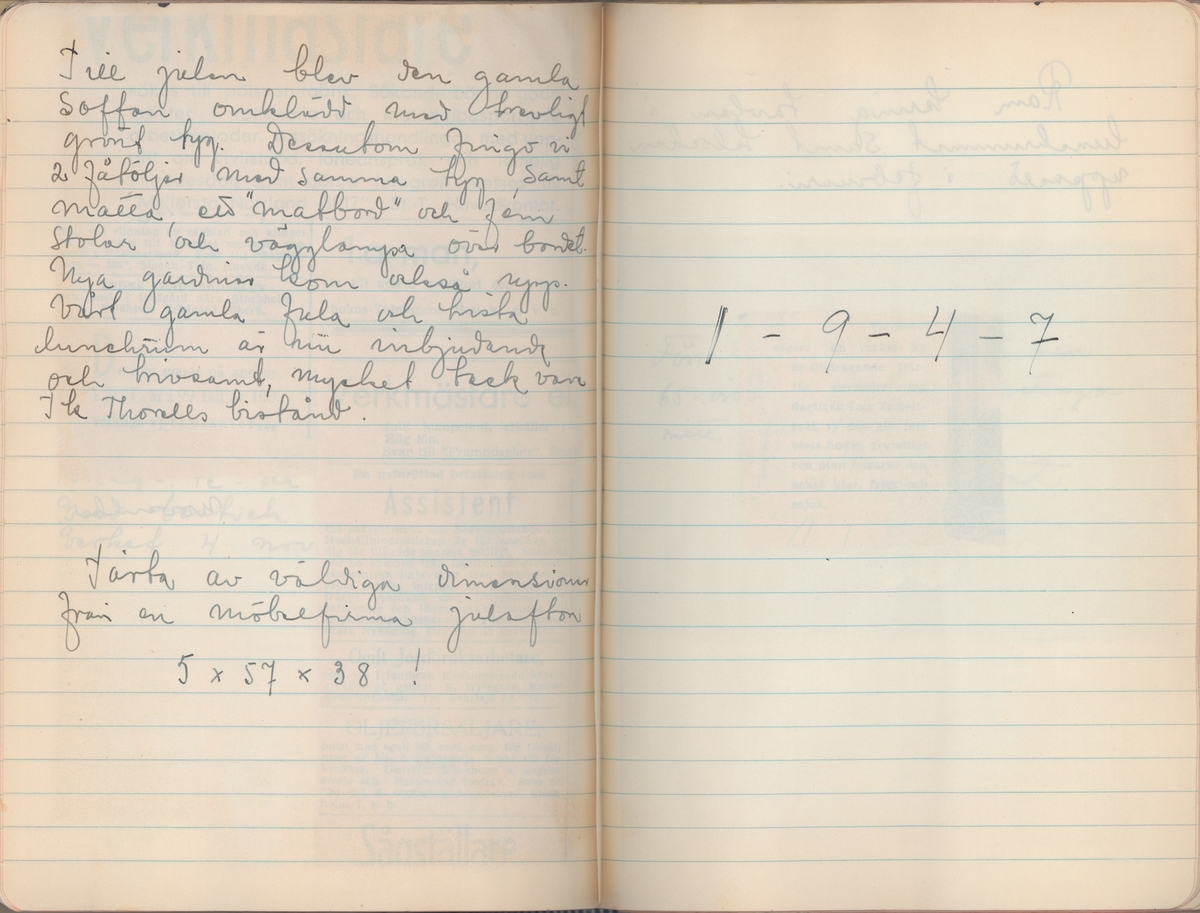 Till julen blev den gamla
soffan omklädd med trevligt
grönt tyg. Dessutom fingo vi
2 fåtöljer med samma tyg, samt
matta, ett "matbord" och fem
stolar och vägglampa över bordet.
Nya gardiner kom också upp.
Vårt gamla fula och trista
lunchrum är nu inbjudande
och trivsamt, mycket tack vare
Thorells bistånd.
Tårta av väldiga dimensioner
från en möbelfirma julafton
5 x 57 x 38 !
1 - 9 - 4 - 7